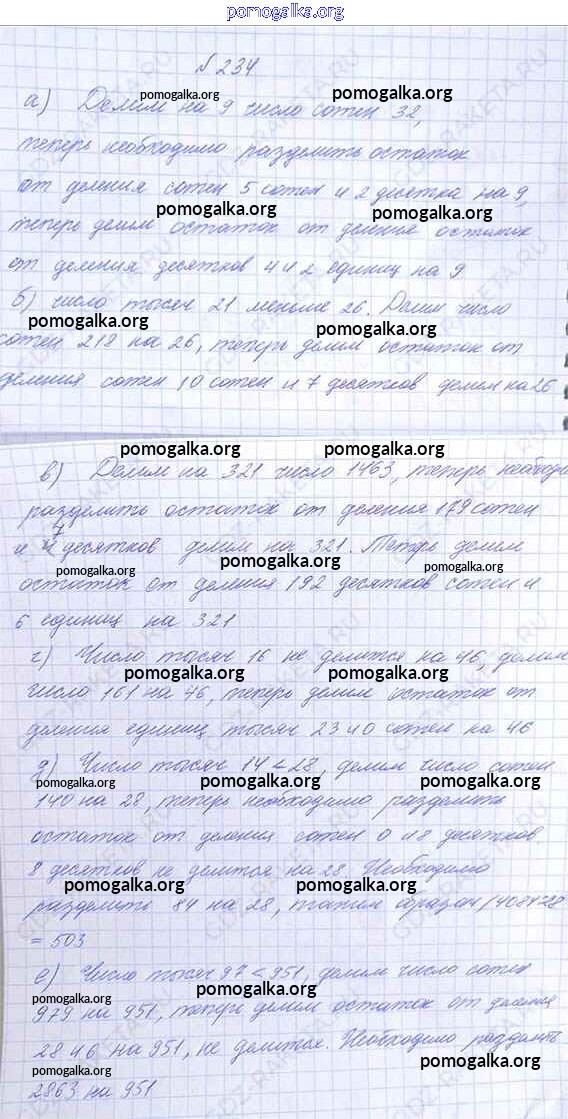 pomogalka.org
№ 234
pomogalka.org
pomogalka.org
а) Делим на 9 число сотен 32,
теперь необходимо разделить остаток
от деления сотен 5 сотен и 2 десятка на 9,
pomogalka.org
pomogalka.org
теперь делим остаток от деления остаток
от деления десятков 4 и 2 единиц на 9
б) число тысяч 21 меньше 26. Делим число
pomogalka.org
pomogalka.org
сотен 218 на 26, теперь делим остаток от
деления сотен 10 сотен и 7 десятков делим на 26
pomogalka.org
pomogalka.org
в) Делим на 321 число 1463, теперь необходи
разделить остаток от деления 179 сотен
и 7 десятков делим на 321. Теперь делим
pomogalka.org
pomogalka.org
pomogalka.org
остаток от деления 192 десятков сотен и
6 единиц на 321
г) Число тысяч 16 не делится на 46, делим
pomogalka.org
pomogalka.org
число 161 на 46, теперь делим остаток от
деления единиц тысяч 23 и 0 сотен на 46
д) Число тысяч 14 < 28, делим число сотен
pomogalka.org
pomogalka.org
pomogalka.org
140 на 28, теперь необходимо разделить
остаток от деления сотен 0 и 8 десятков.
8 десятков не делится на 28. Необходимо
pomogalka.org
pomogalka.org
разделить 84 на 28, таким образом 14084:28
= 503
е) Число тысяч 97 < 951, делим число сотен
pomogalka.org
pomogalka.org
979 на 951, теперь делим остаток от деления
28 и 6 на 951, не делится. Необходимо разделить
pomogalka.org
pomogalka.org
2863 на 951